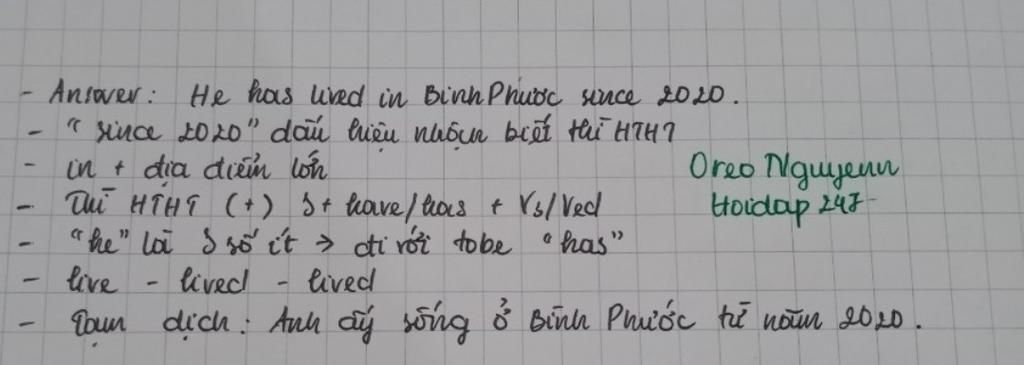 - Answer: He has lived in Bình Phước since 2020.
- "since 2020" dấu hiệu nhận biết thì HTHT
- in + địa điểm lớn
- Thì HTHT (+) S + have/has + V3/Ved
- "he" là S số ít → đi với tobe "has"
- live - lived - lived
- Tạm dịch: Anh ấy sống ở Bình Phước từ năm 2020.
Oreo Nguyenn
Hoidap 247